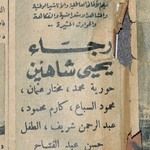 والحوادث المثيرة
رجاء
يحيى شاهين
حورية محمد، مختار عثمان،
محمود السباع، كارم محمود،
عبد الرحمن شريف، الطفل
حسن عبد الفتاح